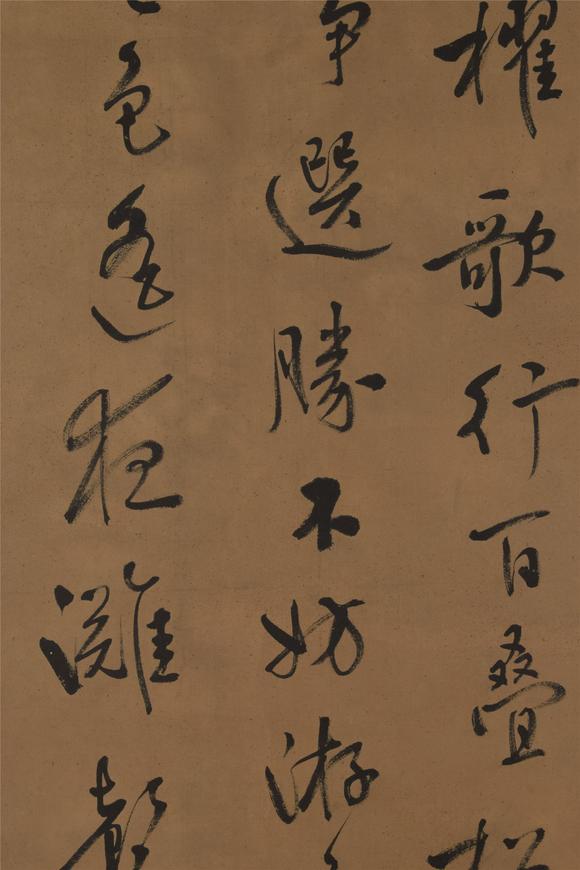 櫂歌行百疊
爭選勝不妨游
色遙灘